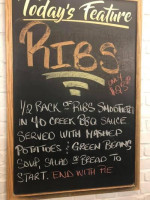 Today's Feature
RIBS
1/2 RACK OF RIBS SMOOTHERED
IN 40 CREEK BBQ SAUCE
SERVED WITH MASHED
POTATOES & GREEN BEANS
SOUP, SALAD OR BREAD TO
START. END WITH ME